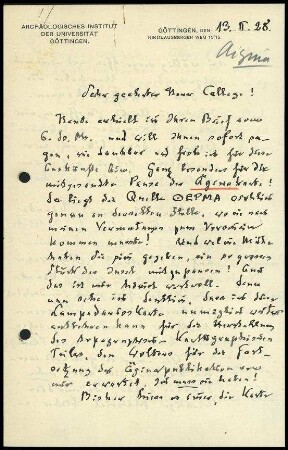 ARCHÄOLOGISCHES INSTITUT
DER UNIVERSITÄT
GÖTTINGEN.
GÖTTINGEN, DEN 13. II. 28.
NIKOLAUSBERGER WEG
Aigina
Sehr geehrter Herr College!
Heute erhielt ich Ihren Brief vom
6. ds. Ms. und will Ihnen sofort sa-
gen, wie dankbar und froh ich für diese
bin. Ganz besonders für die
mitgesandte Pause der Äginakarte!
Da liegt die Quelle ΘΕΡΜΑ
genau an derselben Stelle, wo sie nach
meiner Vermutung zum Vorschein
kommen musste! Und welche Mühe
haben Sie sich gegeben, ein so grosses
Stück der Insel mitzupausen! Auch
das ist mir äusserst wertvoll. Denn
nun sehe ich deutlich, dass ich diese
Karte unmöglich
entbehren kann für die Herstellung
des kartographischen
Teiles, den Wolters für die Fort-
setzung der Äginapublikation von
mir erwartet. Das muss ich haben!
Bisher die Karte